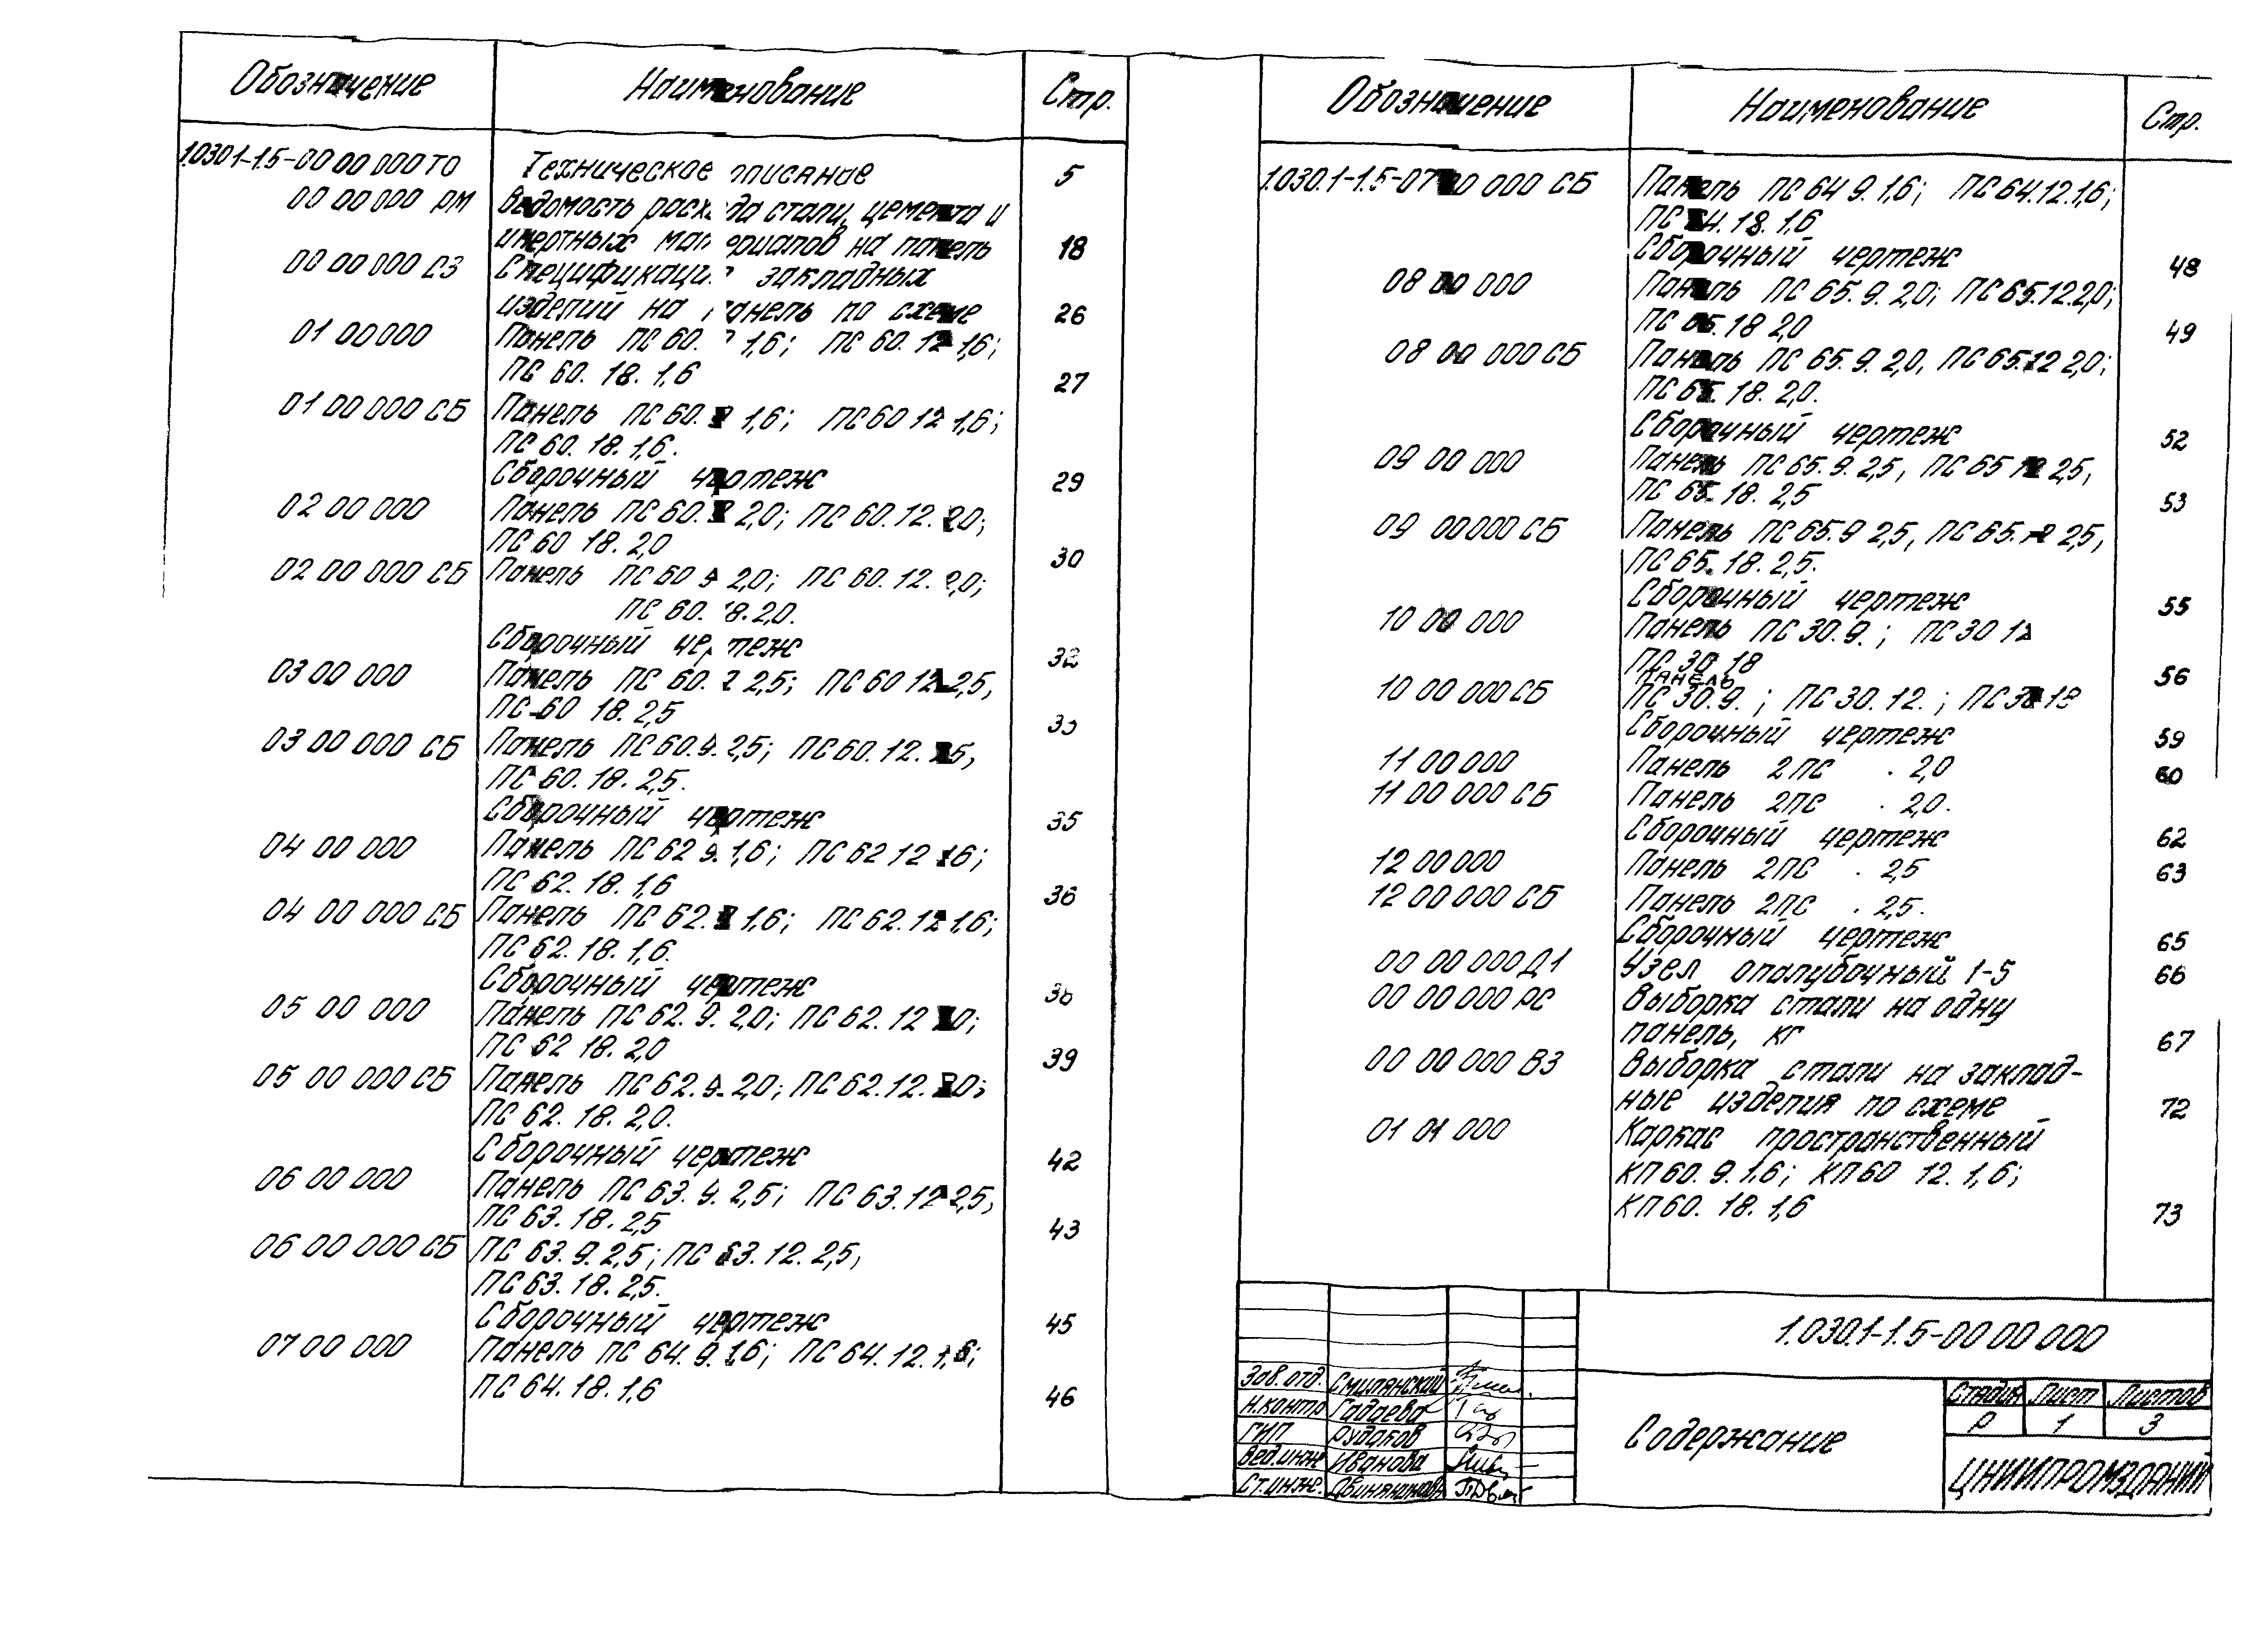 Обозначение Наименование Стр.
1.030.1-1.5-00 00 000 ТО Техническое описание 5
00 00 000 РМ Ведомость расхода стали, цемента и
инертных материалов на панель 18
00 00 000 СЗ Спецификация закладных
изделий на панель по схеме 26
01 00 000 Панель ПС 60. 1,6; ПС 60. 12 1,6;
ПС 60. 18. 1,6 27
01 00 000 СБ Панель ПС 60. 1,6; ПС 60 12 1,6;
ПС 60. 18. 1,6.
Сборочный чертеж 29
02 00 000 Панель ПС 60. 2,0; ПС 60. 12. 2,0;
ПС 60 18. 2,0 30
02 00 000 СБ Панель ПС 60 9 2,0; ПС 60. 12. 2,0;
ПС 60. 18. 2,0.
Сборочный чертеж 32
03 00 000 Панель ПС 60. 2,5; ПС 60 12 2,5,
ПС 60 18. 2,5
03 00 000 СБ Панель ПС 60. 9. 2,5; ПС 60. 12. 2,5,
ПС 60. 18. 2,5.
Сборочный чертеж 35
04 00 000 Панель ПС 62 9. 1,6; ПС 62 12 1,6;
ПС 62. 18. 1,6 36
04 00 000 СБ Панель ПС 62. 1,6; ПС 62. 12 1,6;
ПС 62. 18. 1,6.
Сборочный чертеж 38
05 00 000 Панель ПС 62. 9. 2,0; ПС 62. 12 2,0;
ПС 62 18. 2,0 39
05 00 000 СБ Панель ПС 62. 9. 2,0; ПС 62. 12. 2,0;
ПС 62. 18. 2,0.
Сборочный чертеж 42
06 00 000 Панель ПС 63. 9. 2,5; ПС 63. 12 2,5,
ПС 63. 18. 2,5 43
06 00 000 СБ ПС 63. 9. 2,5; ПС 63. 12. 2,5,
ПС 63. 18. 2,5.
Сборочный чертеж 45
07 00 000 Панель ПС 64. 9. 1,6; ПС 64. 12. 1,6;
ПС 64. 18. 1,6 46
Обозначение Наименование Стр.
1.030.1-1.5-07 00 000 СБ Панель ПС 64 9. 1,6; ПС 64.12.1,6;
ПС 64. 18. 1,6
Сборочный чертеж 48
08 00 000 Панель ПС 65. 9. 2,0; ПС 65.12.2,0;
ПС 65. 18 2,0 49
08 00 000 СБ Панель ПС 65. 9. 2,0, ПС 65.12 2,0;
ПС 65. 18. 2,0.
Сборочный чертеж 52
09 00 000 Панель ПС 65. 9. 2,5, ПС 65 12 2,5,
ПС 65. 18. 2,5 53
09 00 000 СБ Панель ПС 65. 9 2,5, ПС 65. 12 2,5,
ПС 65. 18. 2,5.
Сборочный чертеж 55
10 00 000 Панель ПС 30. 9. ; ПС 30 12
ПС 30 18 56
10 00 000 СБ ПАНЕЛЬ
ПС 30. 9. ; ПС 30. 12. ; ПС 30 18
Сборочный чертеж 59
11 00 000 Панель 2ПС . 2,0 60
11 00 000 СБ Панель 2ПС . 2,0.
Сборочный чертеж 62
12 00 000 Панель 2ПС . 2,5 63
12 00 000 СБ Панель 2ПС . 2,5.
Сборочный чертеж 65
00 00 000 Д1 Узел опалубочный 1-5 66
00 00 000 РС Выборка стали на одну
панель, кг 67
00 00 000 ВЗ Выборка стали на заклад-
ные изделия по схеме 72
01 01 000 Каркас пространственный
КП 60. 9. 1,6; КП 60 12. 1,6;
КП 60. 18. 1,6 73
1.030.1-1.5-00 00 000
Зав. отд. Смилянский
Н.контр Гадаева
ГИП Рудаков
Вед.инж Иванова
Ст.инж.
Содержание
Стадия Лист Листов
Р 1 3
ЦНИИПРОМЗДАНИЙ